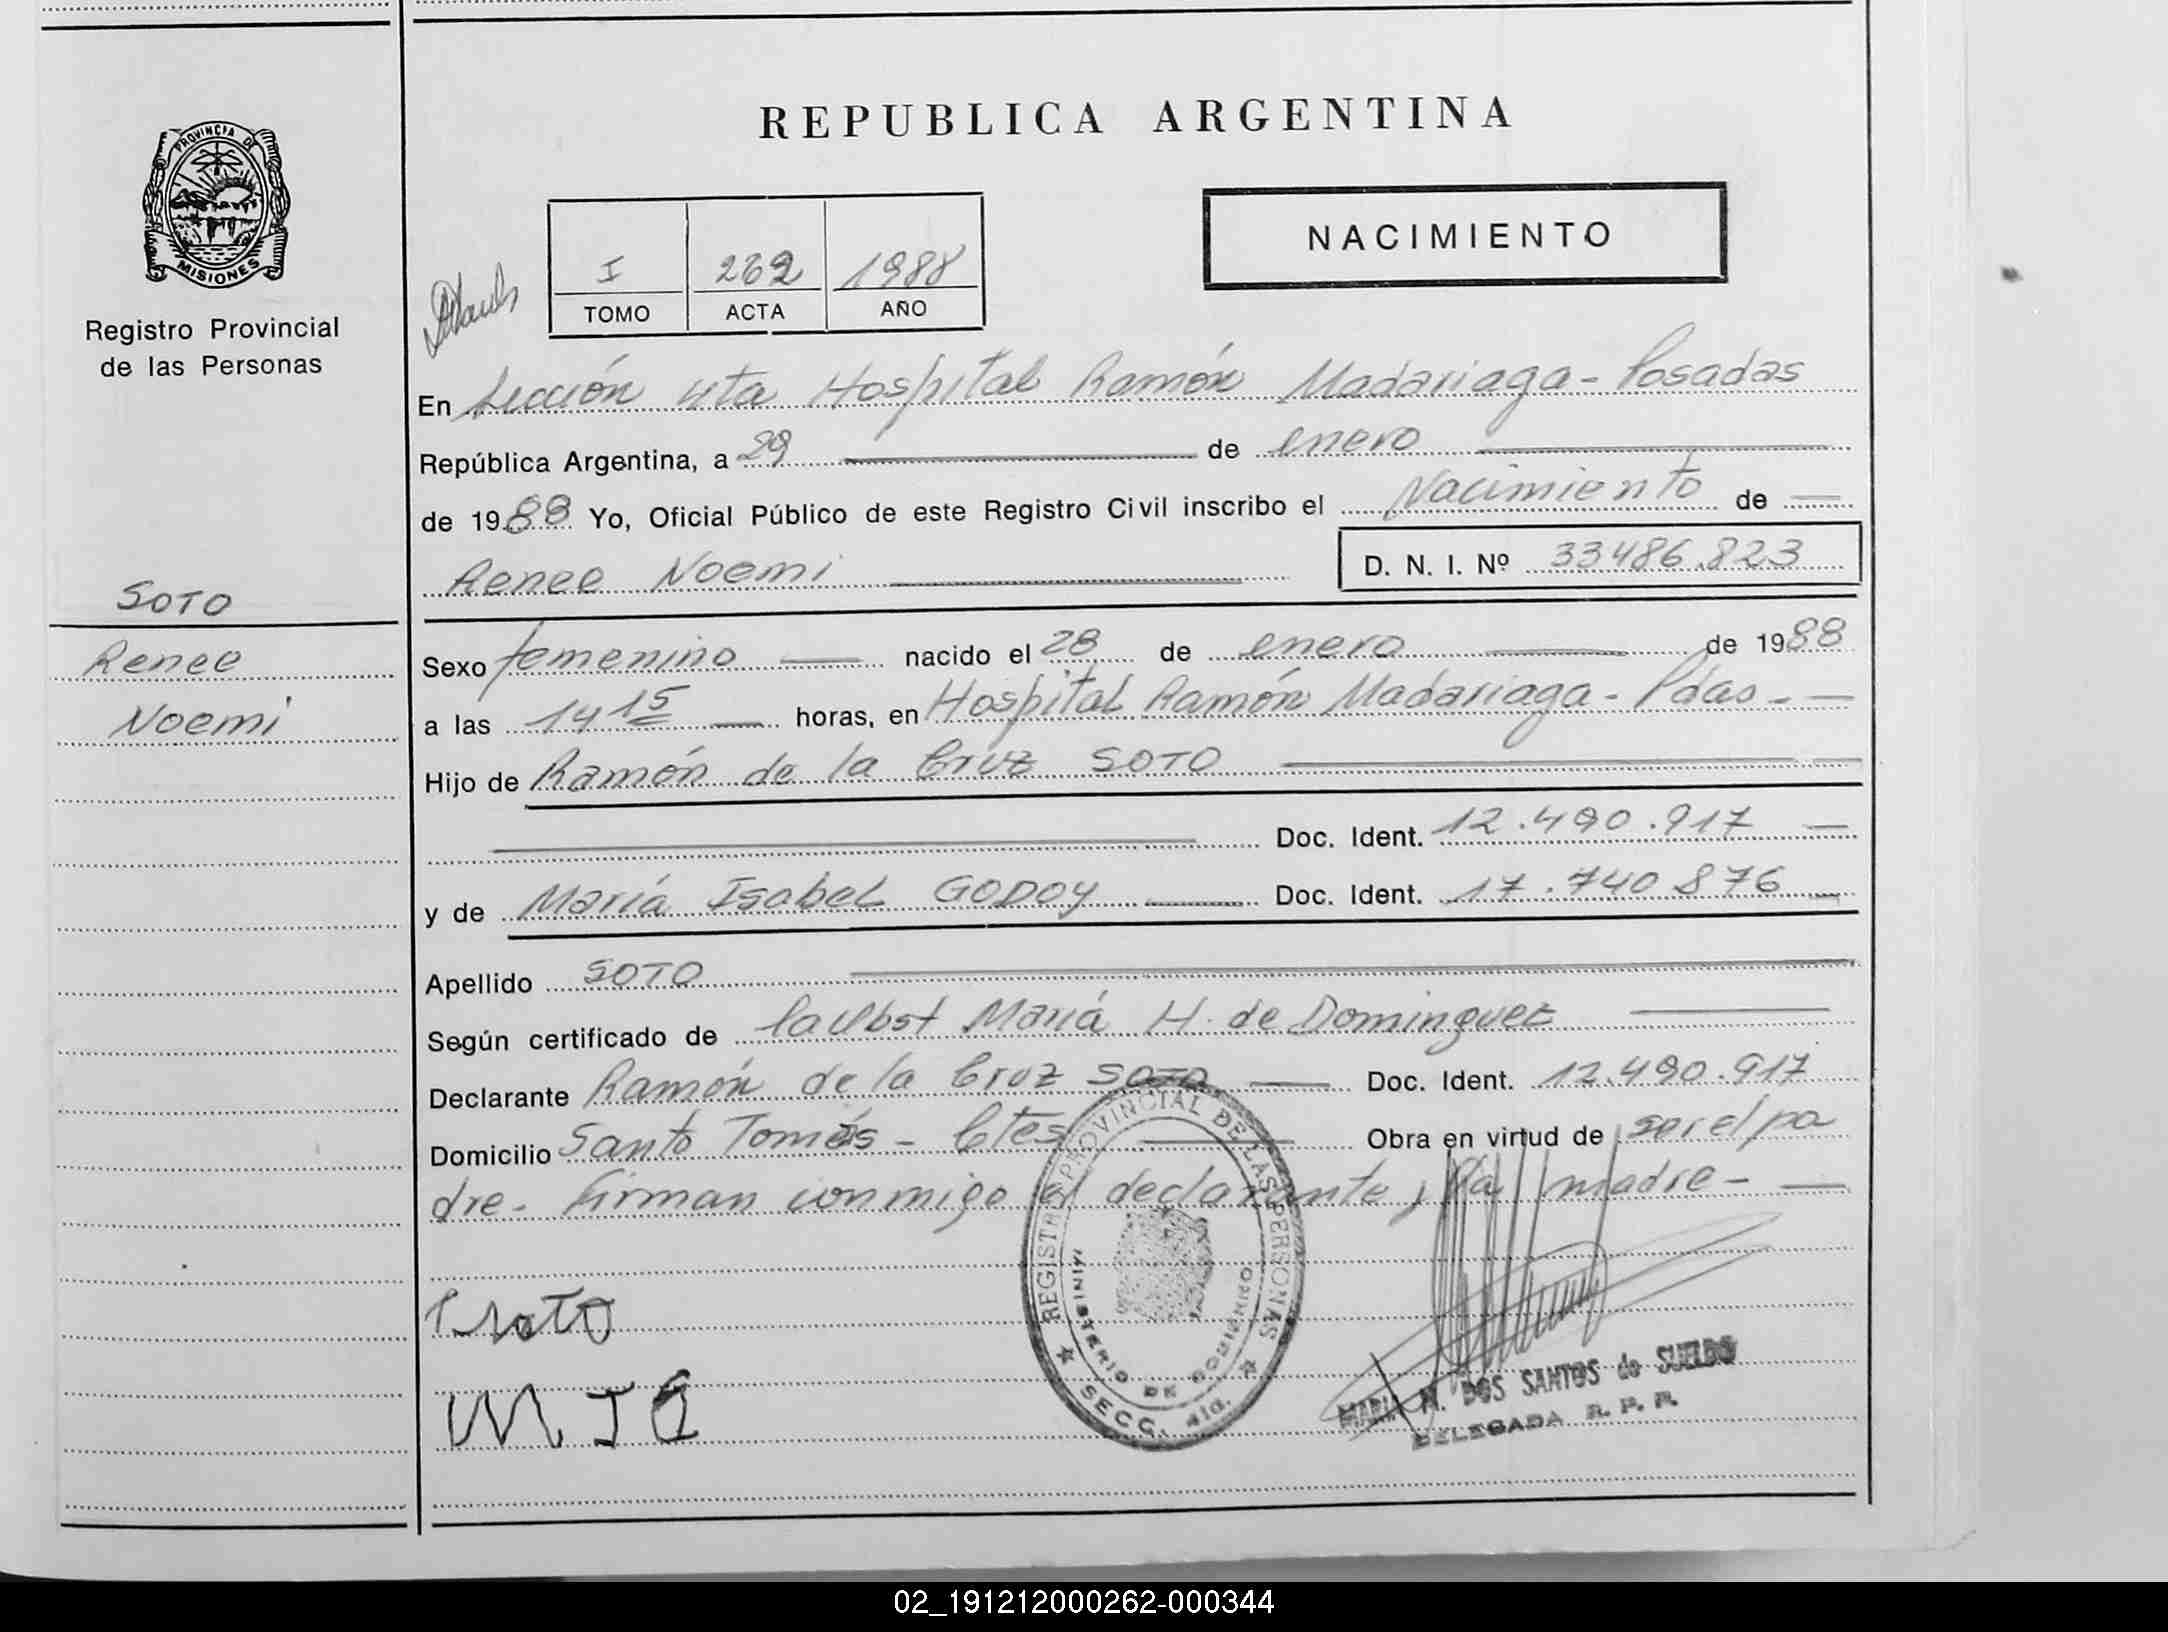 PROVINCIA DE
MISIONES
Registro Provincial
de las Personas
SOTO
Renee
Noemi
REPUBLICA ARGENTINA
I 262 1988
TOMO ACTA AÑO
NACIMIENTO
En Sección 4ta Hospital Ramón Madariaga - Posadas
República Argentina, a 29 de enero
de 1988 Yo, Oficial Público de este Registro Civil inscribo el Nacimiento de
Renee Noemi D. N. I. Nº 33486.823
Sexo femenino nacido el 28 de enero de 1988
a las 14 15 horas, en Hospital Ramón Madariaga - Pdas -
Hijo de Ramón de la Cruz SOTO
Doc. Ident. 12.490.917
y de María Isabel GODOY Doc. Ident. 17.740.876
Apellido SOTO
Según certificado de la Obst María H. de Dominguez
Declarante Ramón de la Cruz SOTO Doc. Ident. 12.490.917
Domicilio Santo Tomés - Ctes Obra en virtud de ser el pa
dre - Firman conmigo el declarante, la madre -
REGISTRO PROVINCIAL DE LAS PERSONAS
MINISTERIO DE GOBIERNO
SECC. 4ta.
Soto
MIG
MARIA N. DOS SANTOS de SUELDO
DELEGADA R. P. P.
02_191212000262-000344